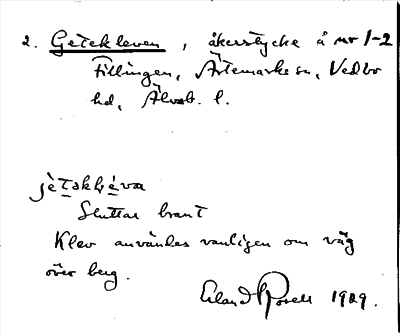 2. Getekleven, åkerstycke å nr 1-2
Fillingen, Ärtemarks sn, Vedbo
hd, Älvsb. l.
jètakléva
Sluttar brant
Klev användes vanligen om väg
över berg.
Erland Rosell 1929.